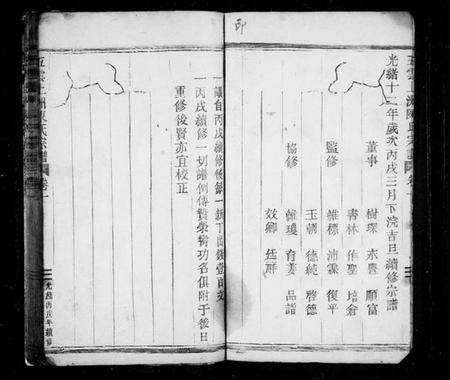 五雲上洲陳氏宗譜 卷一
光緒十二年歲次丙戌三月下浣吉旦續修宗譜
董事 樹琛 永豐 順富
青林 作聖 培倉
監修 維標 沛霖 復平
玉朝 德純 啓德
協修 維瓊 育姜 品謚
效卿 廷群
印
一譜自丙戌續修後餘一新丁
一丙戌續修一切譜例傳贊榮壽功名俱附于後日
重修後賢亦宜校正
五雲上洲陳氏宗譜 卷一
光緒丙戌年續修